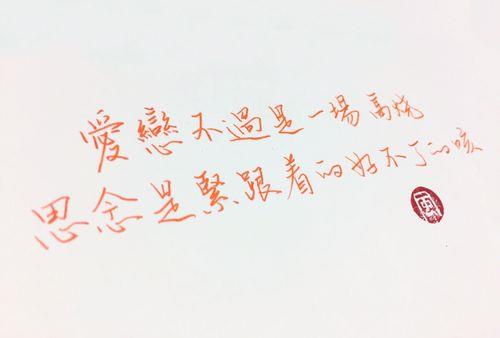 愛戀不過是一場高烧
思念是緊跟着的好不了的咳
風